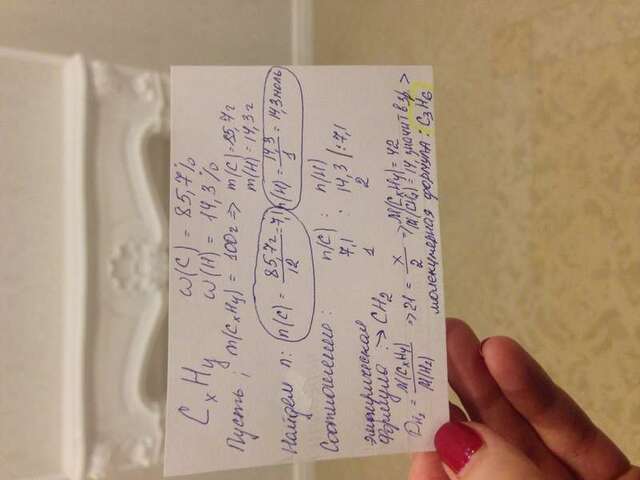 CxHy
w(C) = 85,7%
w(H) = 14,3%
Пусть: m(CxHy) = 100г => m(C)=85,7г
m(H) = 14,3г
Найдем n: n(C) = 85,7г/12 = 7,1 n(H) = 14,3/1 = 14,3моль
Соотношение: n(C) : n(H)
7,1 : 14,3 |:7,1
1 2
эмпирическая
формула: -> CH2
DH2 = M(CxHy)/M(H2) => 21 = x/2 => M(CxHy) = 42
M(CH2) = 14, значит в 3р >
молекулярная формула: C3H6